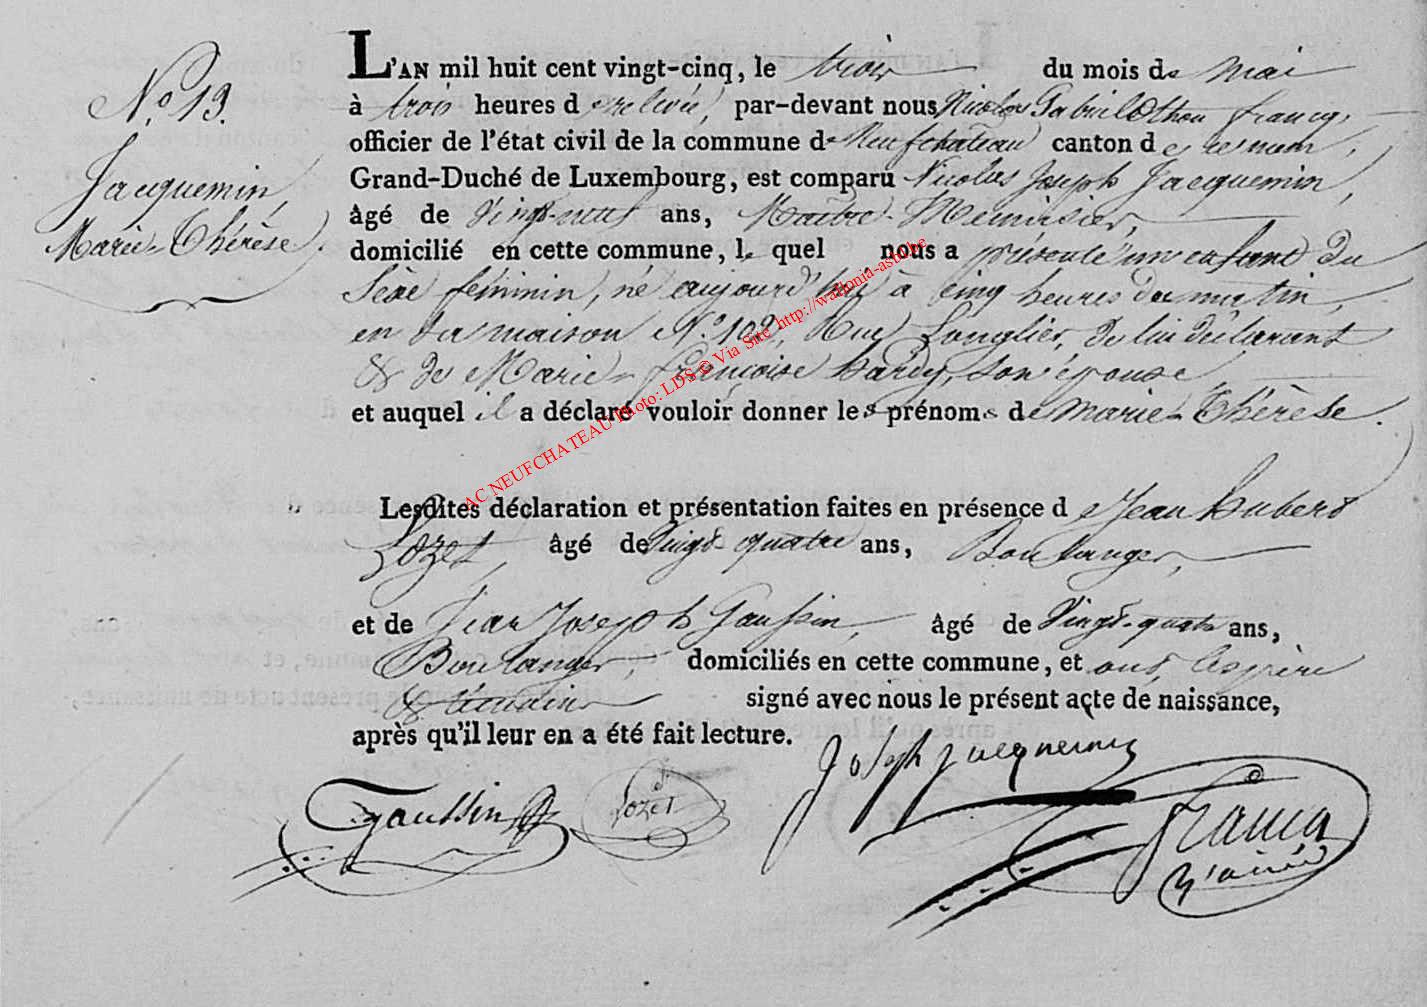 N.º 13.
Jacquemin,
Marie-Thérèse.
L'AN mil huit cent vingt-cinq, le trois du mois de mai
à trois heures de relevée, par-devant nous Nicolas Gabriel Othon francq,
officier de l'état civil de la commune de Neufchateau canton de
Grand-Duché de Luxembourg, est comparu Nicolas Joseph Jacquemin,
âgé de Vingt-neuf ans, Maître-Menuisier,
domicilié en cette commune, le quel nous a présenté un enfant du
Sexe féminin, né aujourd'hui à cinq heures du matin,
en sa maison N.º 102, Rue Longlier, de lui déclarant
& de Marie-françoise hardy, son épouse
et auquel il a déclaré vouloir donner les prénoms de marie-Thérèse.
Lesdites déclaration et présentation faites en présence de Jean hubert
Lozet, âgé de Vingt-quatre ans, Boulanger,
et de Jean Joseph Gaussin, âgé de Vingt-quatre ans,
Boulanger, domiciliés en cette commune, et ont, les père
& témoins signé avec nous le présent acte de naissance,
après qu'il leur en a été fait lecture.
Joseph jacquemin
Gaussin Lozet
francq
AC NEUFCHATEAU Photo: LDS © Via Site http://wallonia-asbl.be